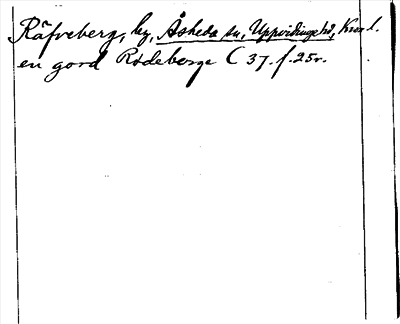 Räfveberg, by, Åsheda sn, Uppvidinge hd, Kron l.
en gord Rödeberge C 37. f. 25r.